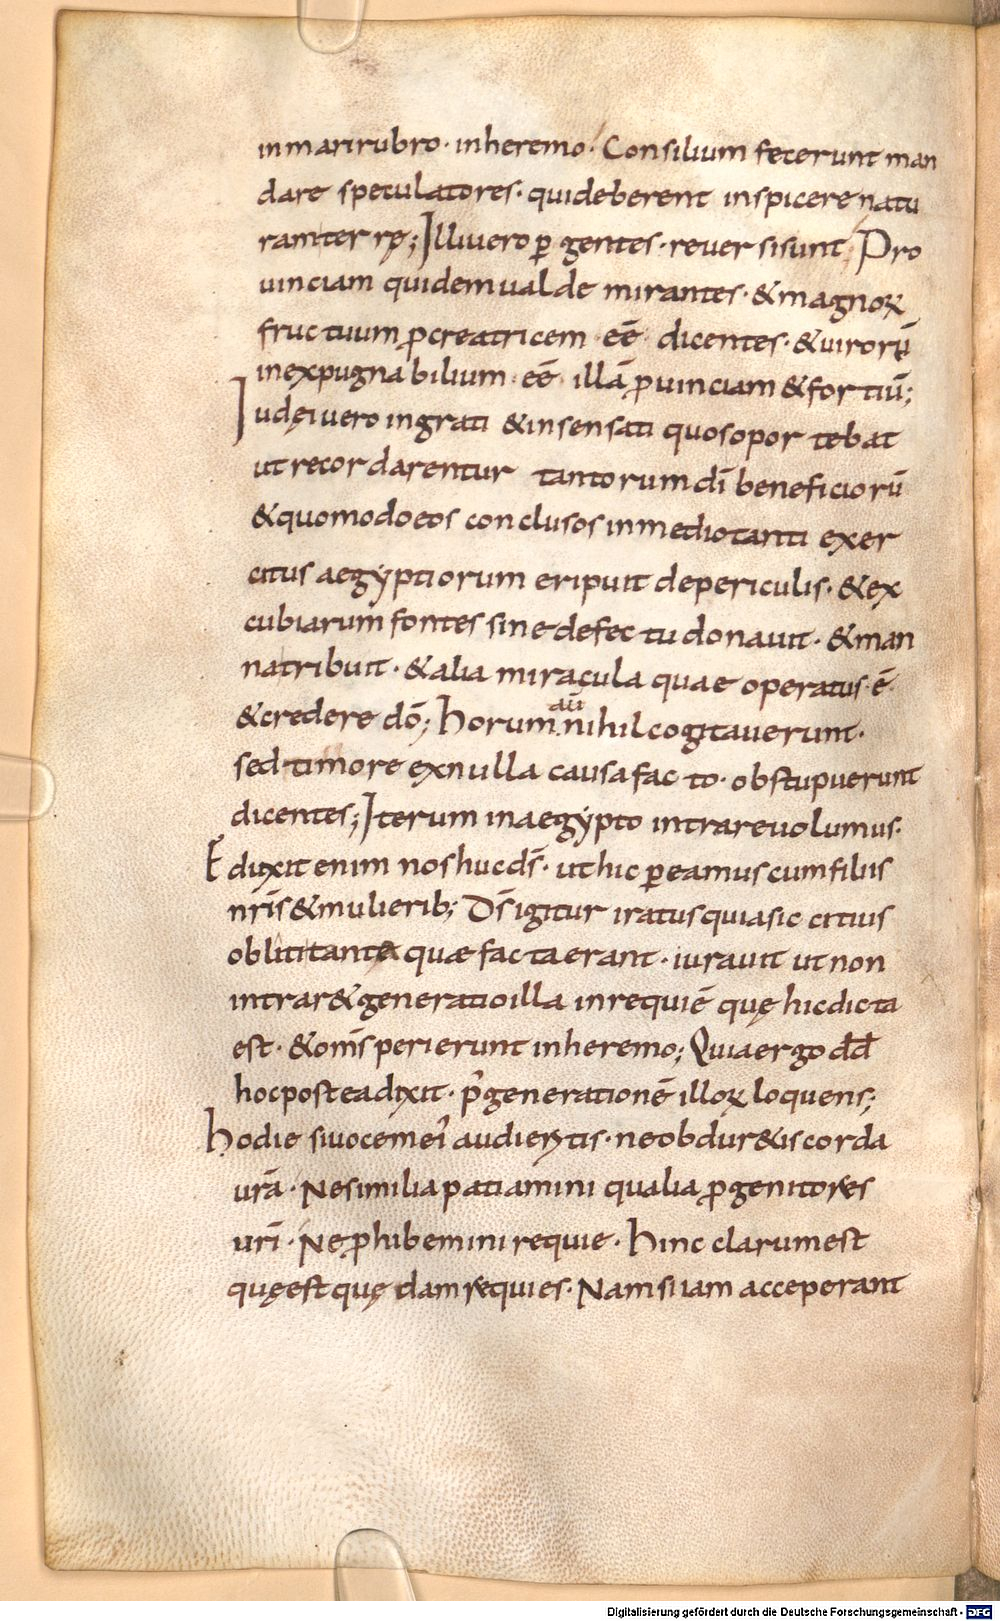 inmarirubro · inheremo · Consilium fecerunt man
dare speculatores · quideberent inspicere natu
ramterrę; Illiuero p̄ gentes · reuersisunt · Pro
uinciam quidemualde mirantes · &magnoꝝ
fructuum ꝓcreatricem · eē · dicentes · &uirorū
inexpugnabilium · eē · illā ꝓuinciam &fortiū;
Iudęiuero ingrati &insensati quosoportebat
utrecordarentur tantorum dī beneficiorū
&quomodoeos conclusos inmediotanti exer
citus aegyptiorum eripuit depericulis · &ex
cubiarum fontes sinedefectu donauit · &man
natribuit · &alia miracula quae operatus · ē ·
&credere dō; horum aū nihilcogitauerunt ·
sed timore exnulla causafacto · obstupuerunt
dicentes; Iterum inaegypto intrareuolumus ·
Eduxit enim noshucds̄ · uthic ꝑeamuscumfiliis
nrīs&mulierib; Ds̄ igitur iratusquiasic citius
oblititante quæ factaerant · iurauit ut non
intrar&generatioilla inrequiē quę hicdicta
est · &omīs perierunt inheremo; Quiaergo dd̄
hocposteadixit · p̄generationē illoꝝ loquens;
hodie siuocemeī audieritis · neobdur&is corda
urā · Nesimiliapatiamini qualia ꝓgenitores
urī · Neꝓhibemini requie · hinc clarumest
quęest quędam requies · Namsiiam acceperant
Digitalisierung gefördert durch die Deutsche Forschungsgemeinschaft - DFG